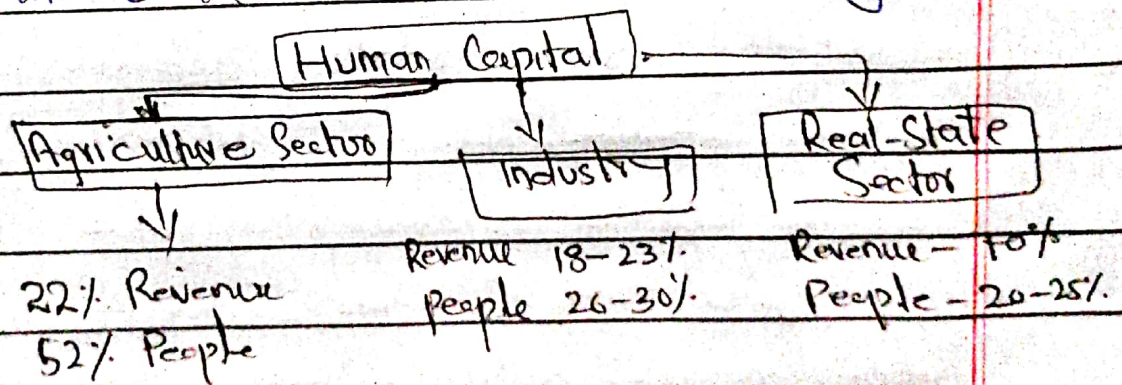 Human Capital
Agriculture Sector
Industry
Real-State
Sector
22% Revenue
52% People
Revenue 18-23%.
People 26-30%.
Revenue - 70%
People - 20-25%.